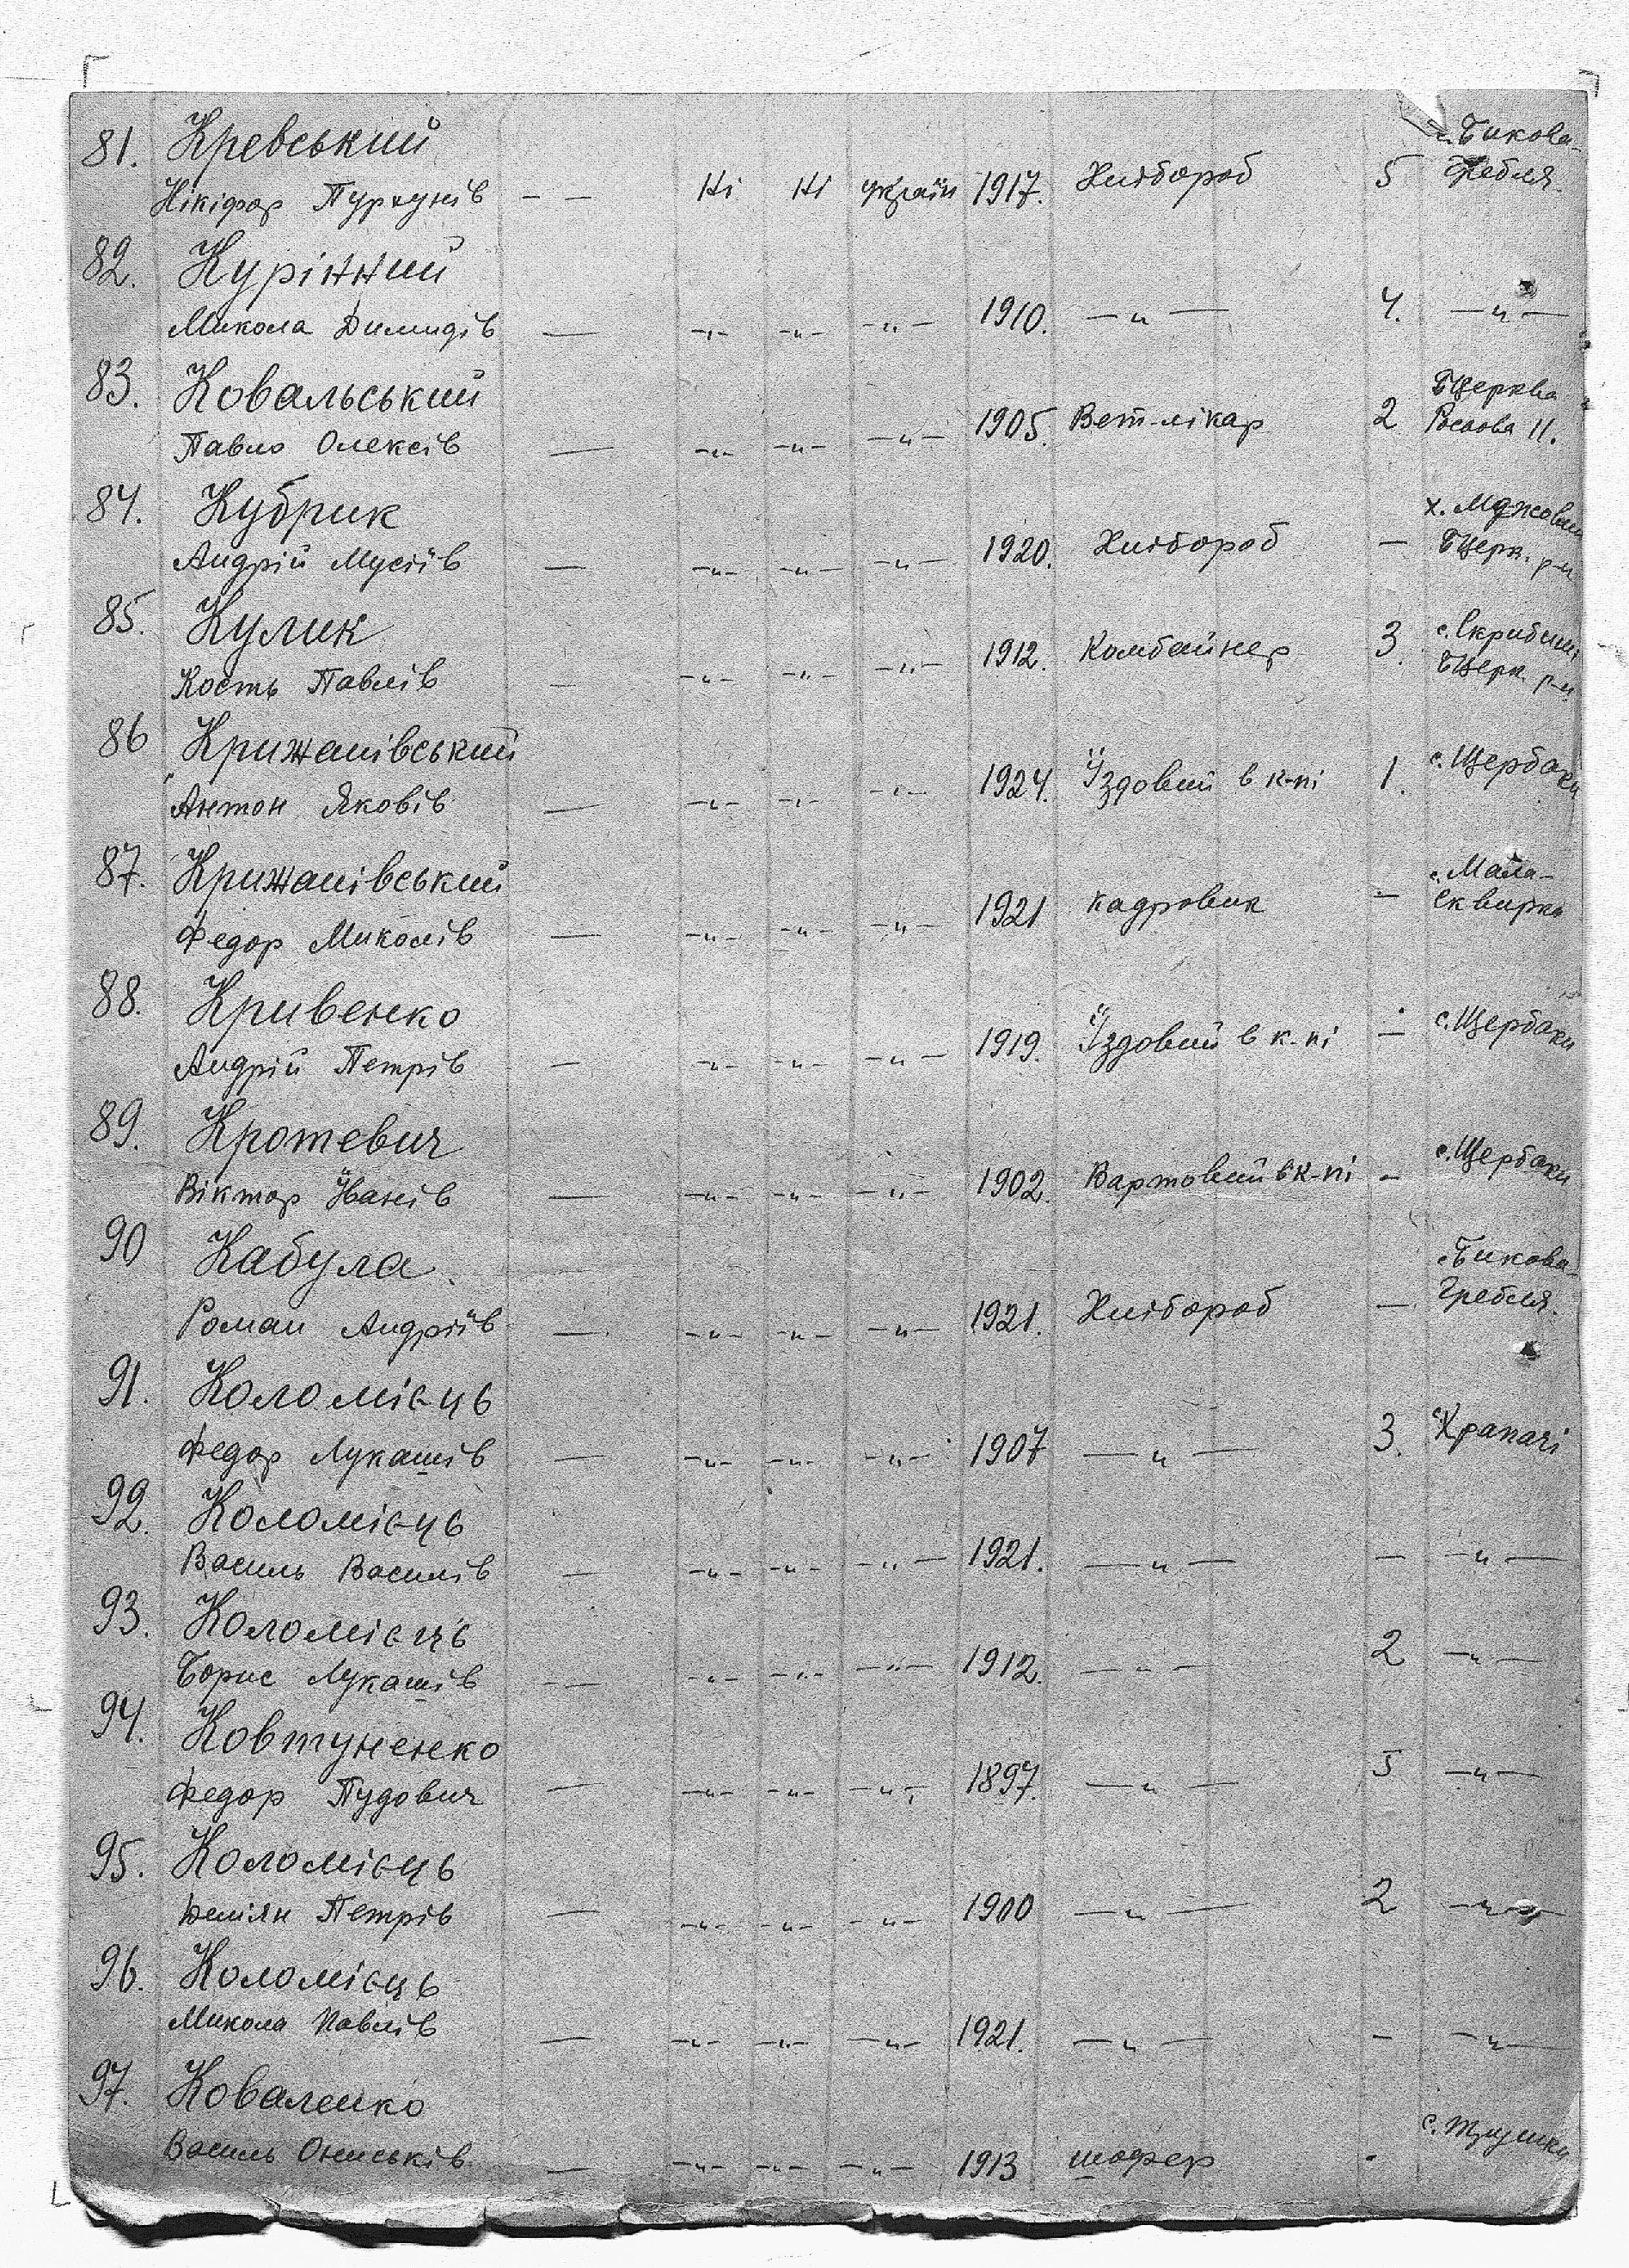 81. Кревський с. Бикова-
Нікіфор — — Ні Ні україн 1917. Хлібороб 5 Гребля.
82. Курінний
Микола Димидів — -"- -"- -"- 1910. —"— 4. —"—
83. Ковальський БЦерква
Павло Олексів — -"- -"- -"- 1905. Вет-лікар 2 11.
84. Кубрик х.
Андрій Мусіїв — -"- -"- -"- 1920. Хлібороб — БЦерк. р-н
85. Кулик
Кость Павлів — -"- -"- -"- 1912. Комбайнер 3. БЦерк р-н
86 Крижанівський с. Щербаки
Антон Яковів — -"- -"- -"- 1924. Їздовий в к-пі 1.
87. Крижанівський с. Мала-
Федор Миколів — -"- -"- -"- 1921 кадровик — Сквирка
88. Кривенко с. Щербаки
Андрій Петрів — -"- -"- -"- 1919. Їздовий в к-пі —
89. Кротевич с. Щербаки
Віктор Іванів — -"- -"- -"- 1902. Вартовий в к-пі -
90 Кабула с. Бикова-
Роман Андріїв — -"- -"- -"- 1921. Хлібороб — Гребля.
91. Коломієць
Федор Лукашів — -"- -"- -"- 1907 —"— 3. с. Крапачі
92. Коломієць
Василь Василів — -"- -"- -"- 1921. —"— — —"—
93. Коломієць
Борис Лукашів — -"- -"- -"- 1912. —"— 2 —"—
94. Ковтуненко
Федор Пудович — -"- -"- -"- 1897. —"— 5 —"—
95. Коломієць
Деміян Петрів — -"- -"- -"- 1900 —"— 2 —"—
96. Коломієць
Микола Павлів — -"- -"- -"- 1921. —"— - —"—
97. Коваленко с. Трушки
Василь Ониськів — -"- -"- -"- 1913 шофер -